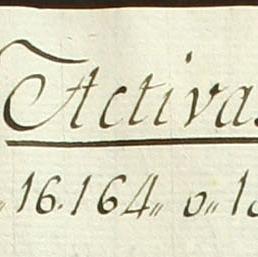 Activas
„ 16.164„ o„ 18